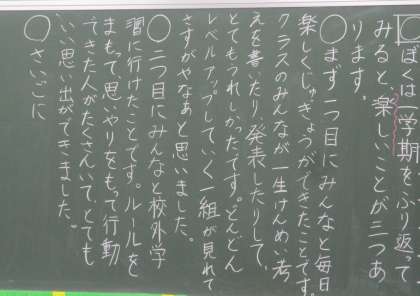 ぼくは一学期をふり返って
みると、楽しいことが三つあ
ります。
まず一つ目にみんなと毎日
楽しくじゅぎょうができたことです。
クラスのみんなが一生けんめい考
えを書いたり、発表したりして、
とてもうれしかったです。どんどん
レベルアップしていく一組が見れて
さすがやなあと思いました。
二つ目にみんなと校外学
習に行けたことです。ルールを
まもって、思いやりをもって行動
できた人がたくさんいて、とても
いい思い出ができました。
さいごに